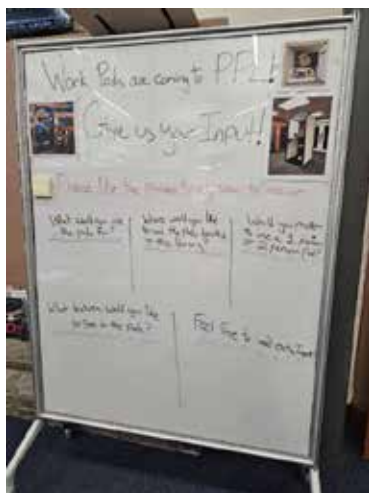 Work Pods are coming to PPL!
Give us your Input!!
What would you use
the pods for?
Where would you like
to see the pods located
in the library?
Would you prefer
to use a 1 person
or 2 person Pod?
What features would you like
to see in the pods?
Feel free to add